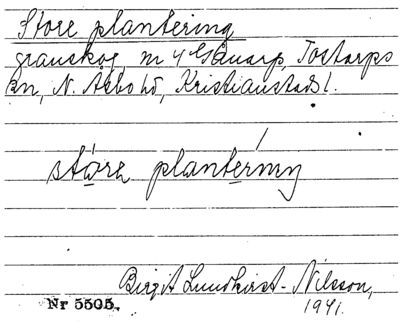 Store plantering
granskog, nr 4 Gånarp, Tostarps
sn, N. Åsbo hd, Kristianstads l.
stɷ̀ra plantériŋ
Birgit Lundkvist-Nilsson,
1941.
Nr 5505.